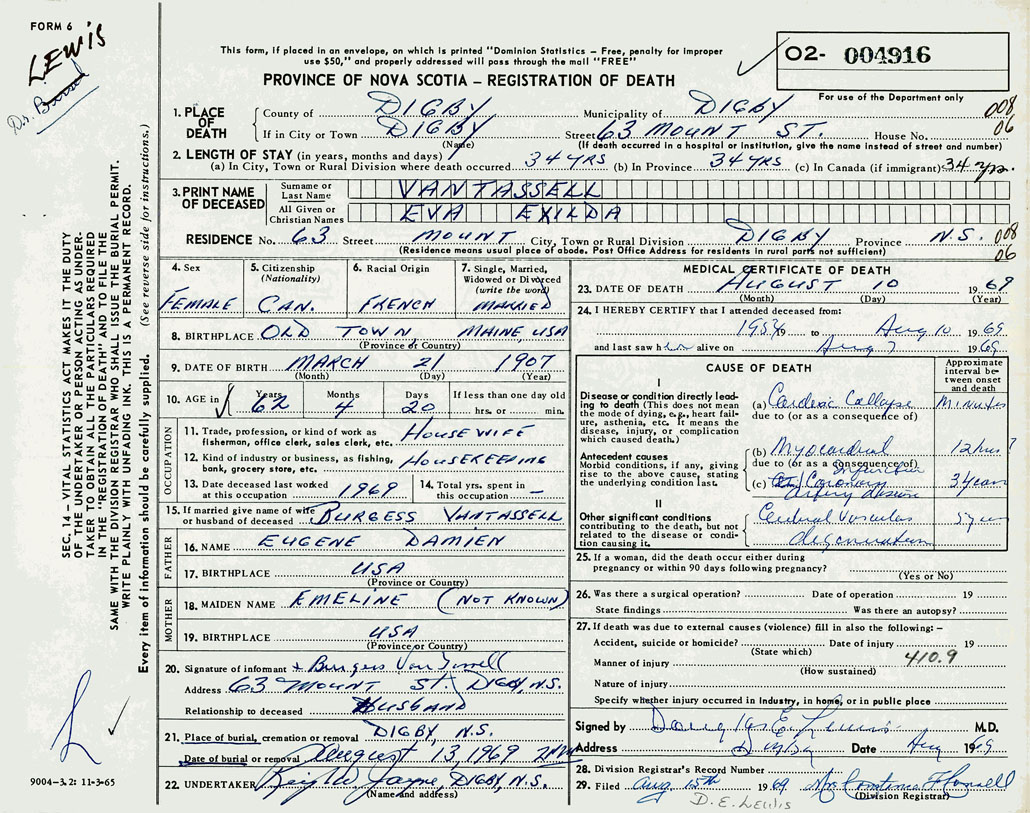 FORM 6
LEWIS
Dr.
This form, if placed in an envelope, on which is printed "Dominion Statistics – Free, penalty for improper
use $50," and properly addressed will pass through the mail "FREE"
PROVINCE OF NOVA SCOTIA – REGISTRATION OF DEATH
O2- 004916
For use of the Department only
1. PLACE OF DEATH
County of DIGBY Municipality of DIGBY 008
If in City or Town DIGBY Street 63 MOUNT ST. House No. 06
(Name) (If death occurred in a hospital or institution, give the name instead of street and number)
2. LENGTH OF STAY (in years, months and days)
(a) In City, Town or Rural Division where death occurred 34 YRS (b) In Province 34 YRS (c) In Canada (if immigrant) 34 yrs.
3. PRINT NAME OF DECEASED
Surname or Last Name VANTASSELL
All Given or Christian Names EVA EXILDA
RESIDENCE No. 63 Street MOUNT City, Town or Rural Division DIGBY Province N.S. 008
(Residence means usual place of abode. Post Office Address for residents in rural ports not sufficient) 06
4. Sex FEMALE
5. Citizenship (Nationality) CAN.
6. Racial Origin FRENCH
7. Single, Married, Widowed or Divorced (write the word) MARRIED
8. BIRTHPLACE OLD TOWN MAINE, USA
(Province or Country)
9. DATE OF BIRTH MARCH 21 1907
(Month) (Day) (Year)
10. AGE in Years 62 Months 4 Days 20 If less than one day old hrs. or min.
OCCUPATION
11. Trade, profession, or kind of work as fisherman, office clerk, sales clerk, etc. HOUSEWIFE
12. Kind of industry or business, as fishing, bank, grocery store, etc. HOUSEKEEPING
13. Date deceased last worked at this occupation 1969
14. Total yrs. spent in this occupation –
15. If married give name of wife or husband of deceased BURGESS VANTASSELL
FATHER
16. NAME EUGENE DAMIEN
17. BIRTHPLACE USA
(Province or Country)
MOTHER
18. MAIDEN NAME EMELINE (NOT KNOWN)
19. BIRTHPLACE USA
(Province or Country)
20. Signature of informant x Burgess VanTassell
Address 63 MOUNT ST., DIGBY, N.S.
Relationship to deceased HUSBAND
21. Place of burial, cremation or removal DIGBY, N.S.
Date of burial or removal August 13, 1969
22. UNDERTAKER Jayne, DIGBY, N.S.
(Name and address)
MEDICAL CERTIFICATE OF DEATH
23. DATE OF DEATH AUGUST 10 1969
(Month) (Day) (Year)
24. I HEREBY CERTIFY that I attended deceased from:
to Aug 10 1969
and last saw her alive on Aug 7 1969
CAUSE OF DEATH
Approximate interval between onset and death
I
Disease or condition directly leading to death (This does not mean the mode of dying, e.g., heart failure, asthenia, etc. It means the disease, injury, or complication which caused death.)
(a) Cardiac Collapse Minutes
due to (or as a consequence of)
Antecedent causes
Morbid conditions, if any, giving rise to the above cause, stating the underlying condition last.
(b) Myocardial infarction 12 hrs ?
due to (or as a consequence of)
(c) Coronary artery disease 3 years
II
Other significant conditions contributing to the death, but not related to the disease or condition causing it.
Cerebral Vascular degeneration
25. If a woman, did the death occur either during pregnancy or within 90 days following pregnancy?
(Yes or No)
26. Was there a surgical operation? Date of operation 19
State findings Was there an autopsy?
27. If death was due to external causes (violence) fill in also the following: –
Accident, suicide or homicide? Date of injury 19
(State which)
Manner of injury 410.9
(How sustained)
Nature of injury
Specify whether injury occurred in Industry, in home, or in public place
Signed by Douglas E. Lewis M.D.
Address Digby Date Aug 1969
28. Division Registrar's Record Number
29. Filed Aug. 15th 1969 Mrs. Constance
(Division Registrar)
D.E. LEWIS
SEC. 14 – VITAL STATISTICS ACT MAKES IT THE DUTY
OF THE UNDERTAKER OR PERSON ACTING AS UNDER-
TAKER TO OBTAIN ALL THE PARTICULARS REQUIRED
IN THE "REGISTRATION OF DEATH" AND TO FILE THE
SAME WITH THE DIVISION REGISTRAR WHO SHALL ISSUE THE BURIAL PERMIT.
WRITE PLAINLY WITH UNFADING INK. THIS IS A PERMANENT RECORD.
Every item of information should be carefully supplied. (See reverse side for instructions.)
9004-3.2: 11-3-65